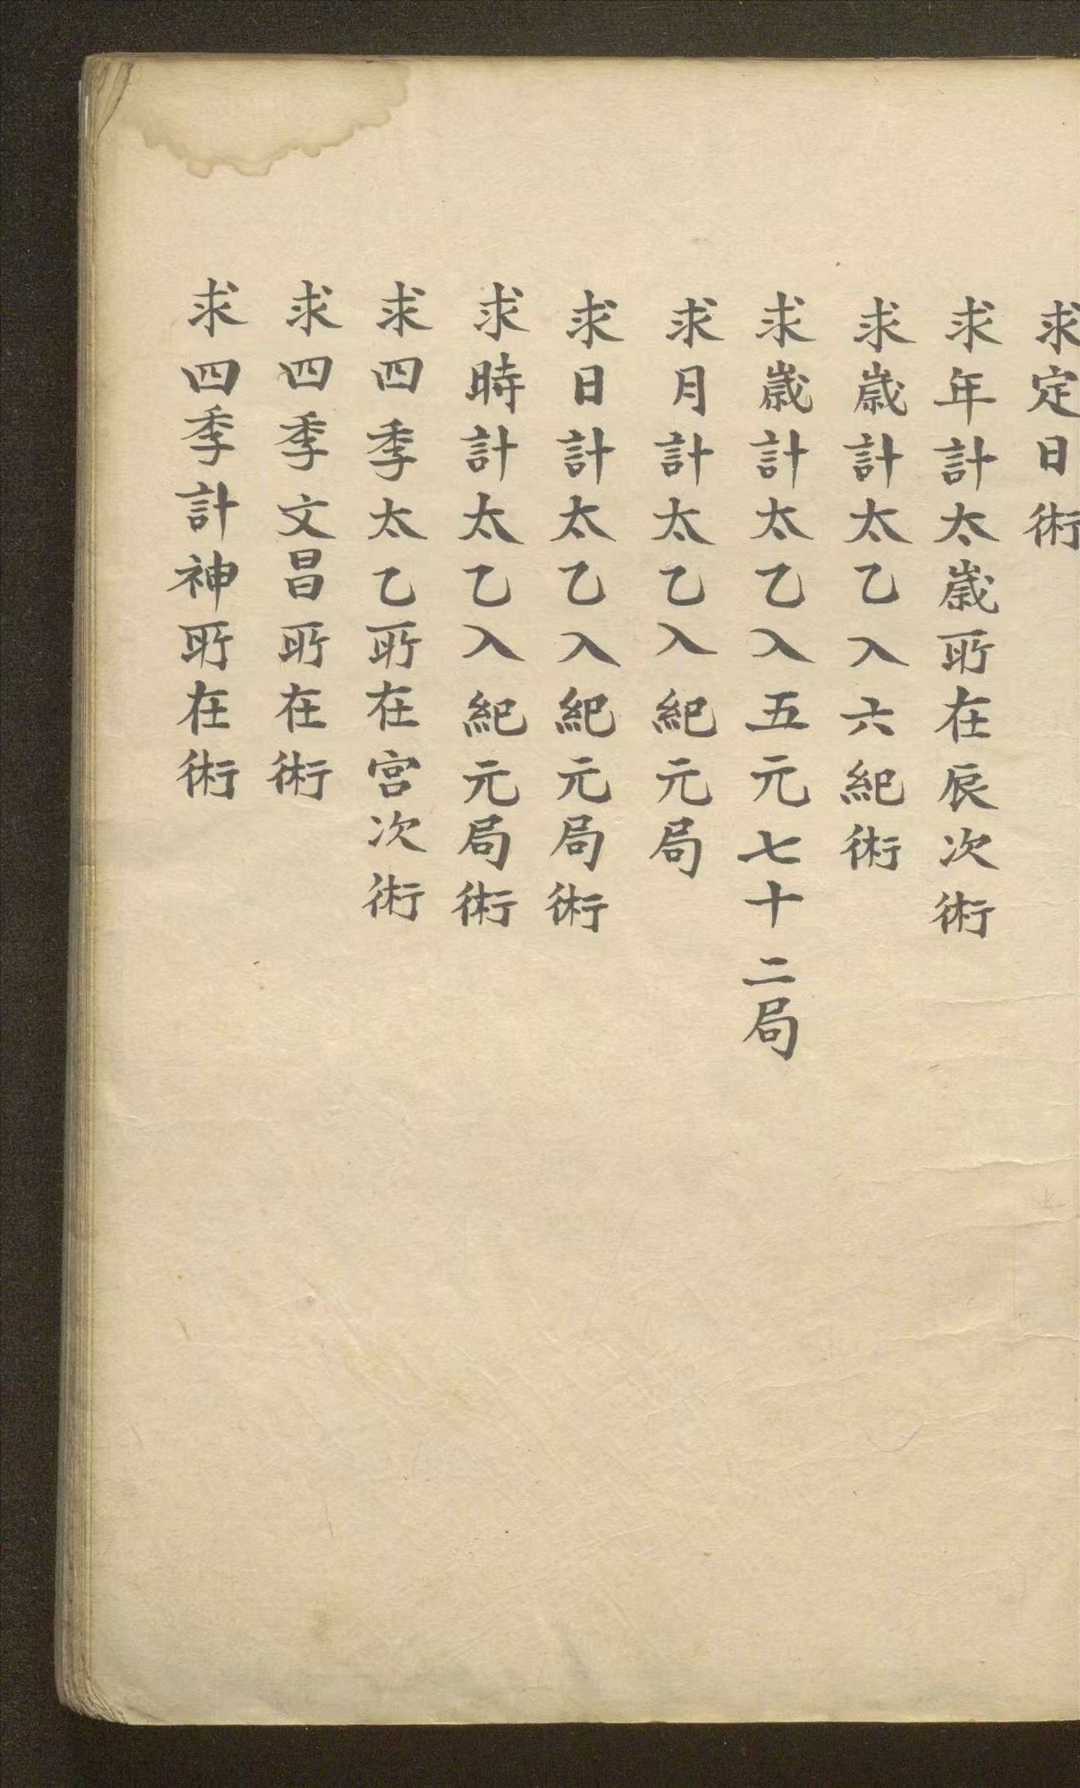 求定日術
求年計太歲所在辰次術
求歲計太乙入六紀術
求歲計太乙入五元七十二局
求月計太乙入紀元局
求日計太乙入紀元局術
求時計太乙入紀元局術
求四季太乙所在宮次術
求四季文昌所在術
求四季計神所在術